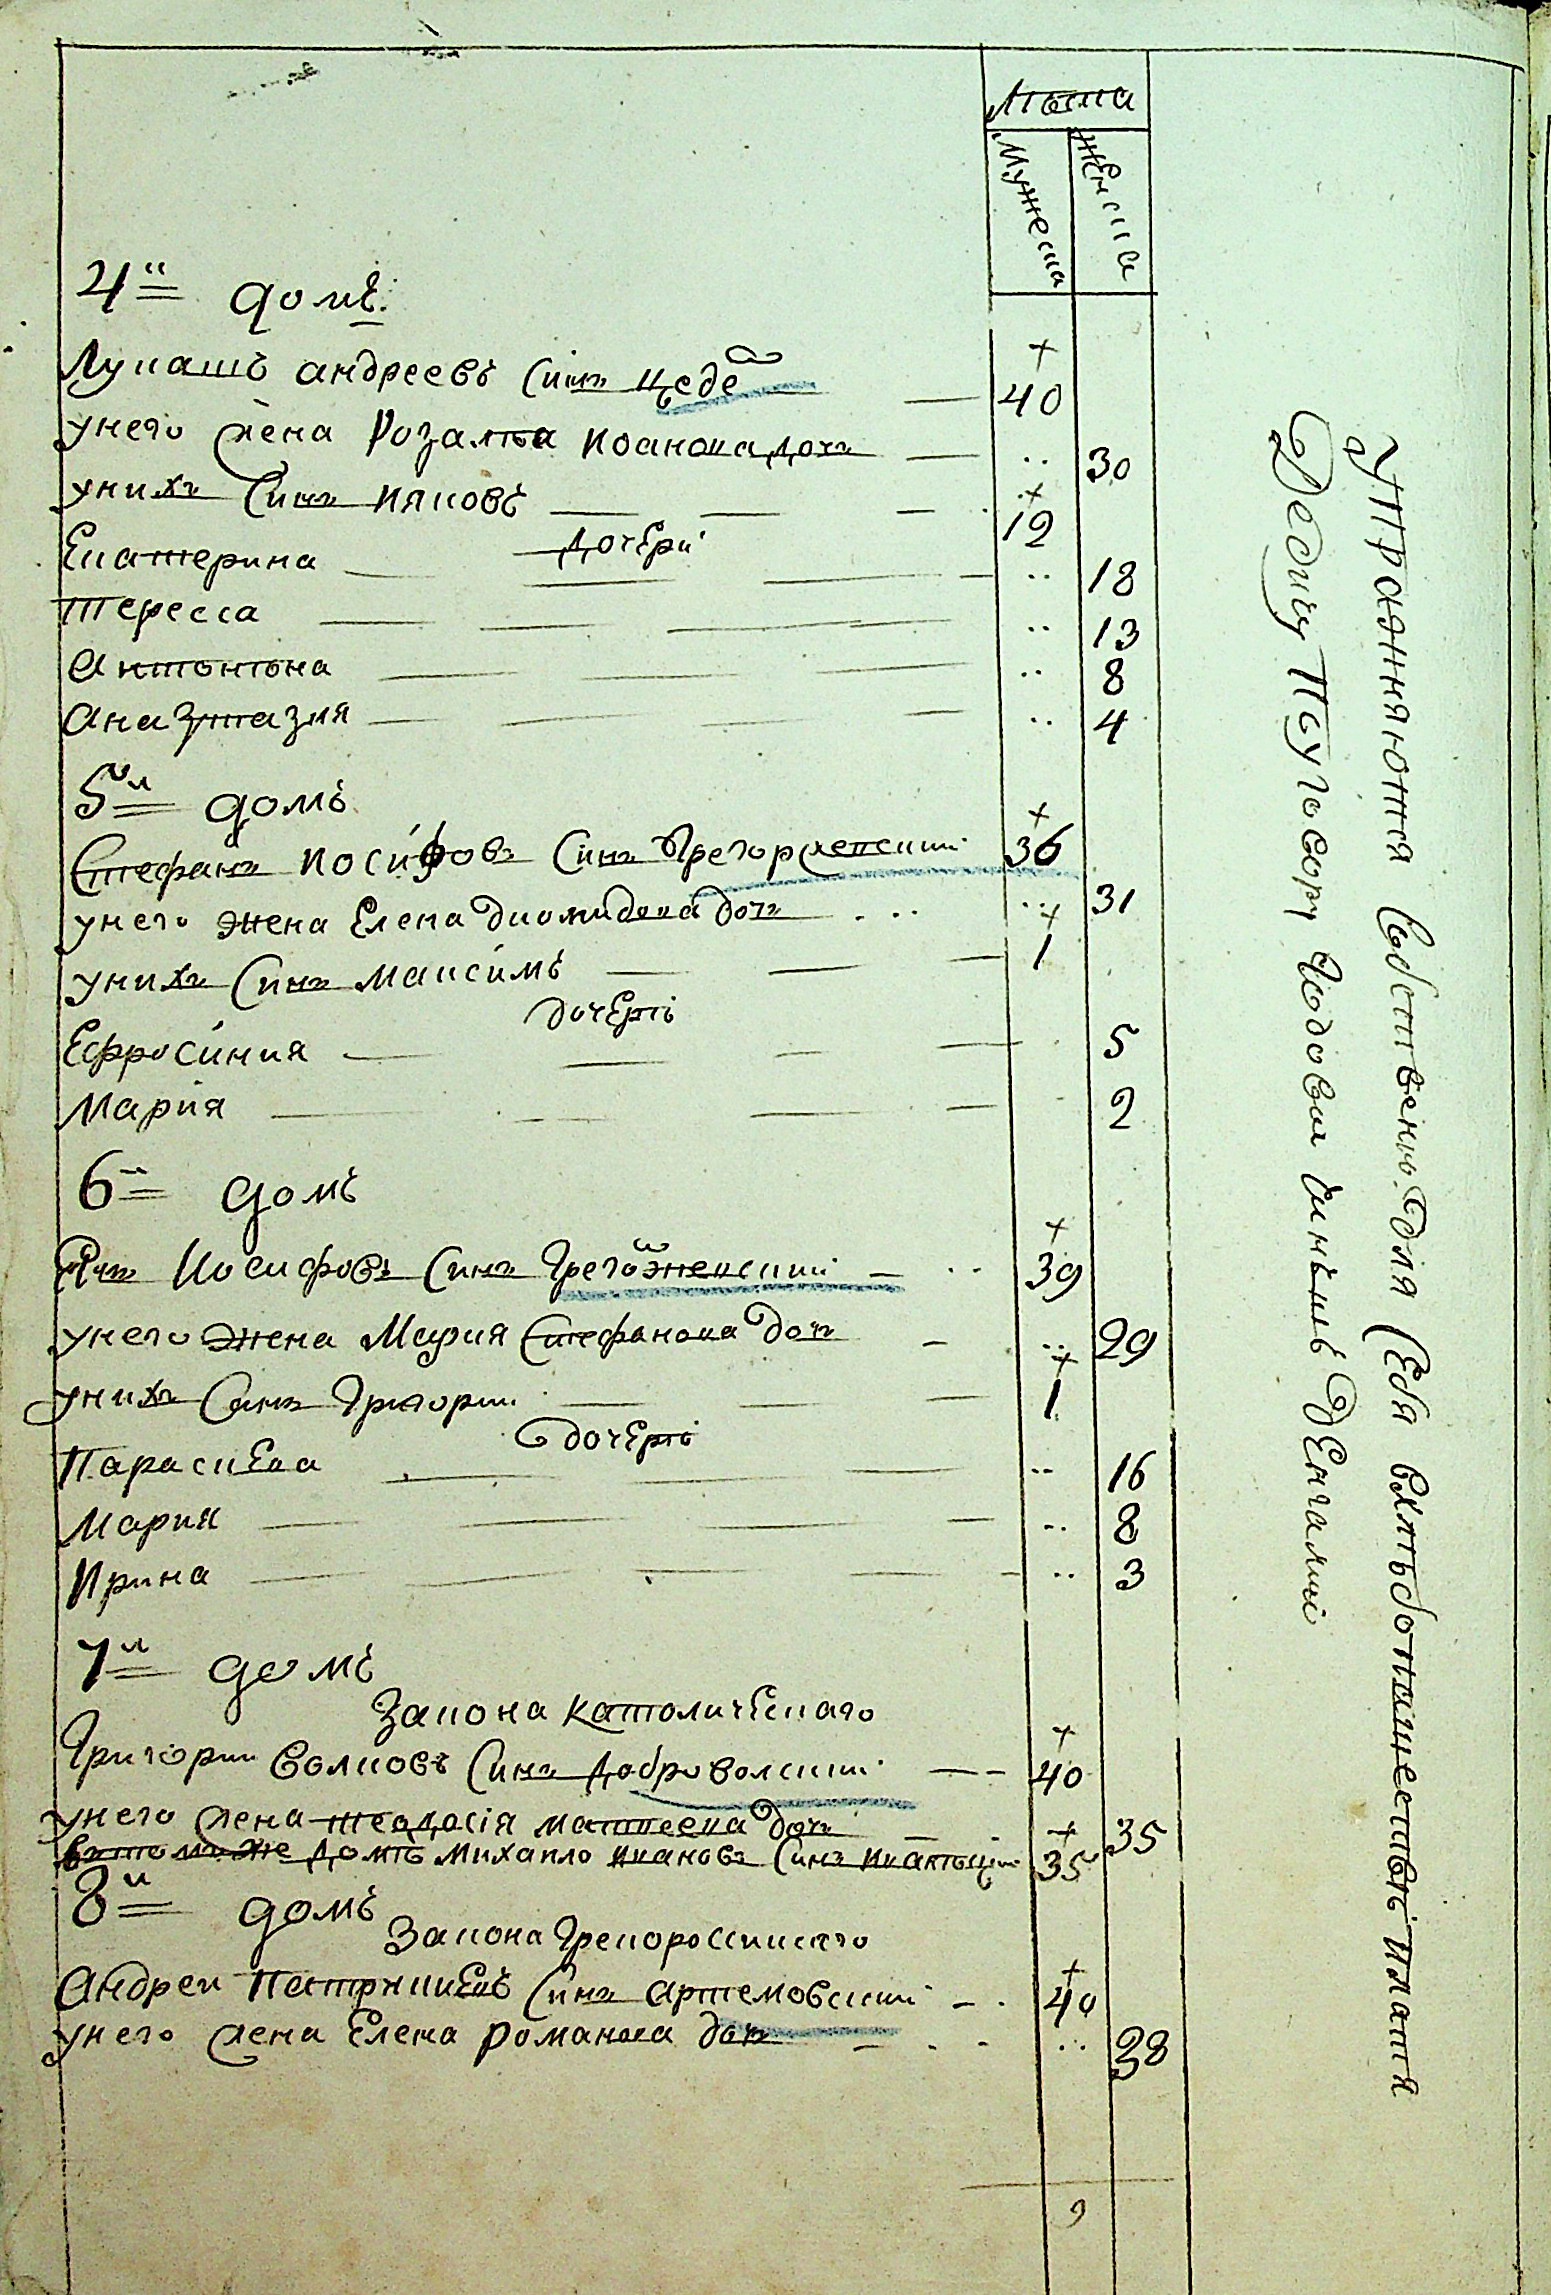 Лѣта
Мужеска
Женска
4й домъ
Лукашъ андреевъ Синъ цеде 40
унего жена Розалѣа иоанова дочъ 30
унихъ Синъ ияковъ 12
дочери
Екатерина 18
Тересса 13
антонѣна 8
аназтазия 4
5й домъ
Стефанъ иосифовъ Синъ Грегоржевский 36
унего жена Елена диомидова дочъ 31
унихъ Синъ максимъ 1
дочерѣ
Ефросиния 5
Мария 2
6й домъ
Иосифовъ Синъ 39
унего жена Мария Стефанова дочъ 29
унихъ Синъ Григории 1
дочерѣ
Параскева 16
Мария 8
Ирина 3
7й домъ
Закона католическаго
Григории Волковъ Синъ Доброволский 40
унего жена Феодосія матвеева дочъ 35
втомъ же домѣ михаило ивановъ Синъ 35
8й домъ
Закона Грекороссийскаго
андреи Синъ артемовский 40
унего жена Елена романова дочъ 38
9
упражняются Собственно для Себя хлѣбопашествомъ платя
Дедичу По Годовой Денгами